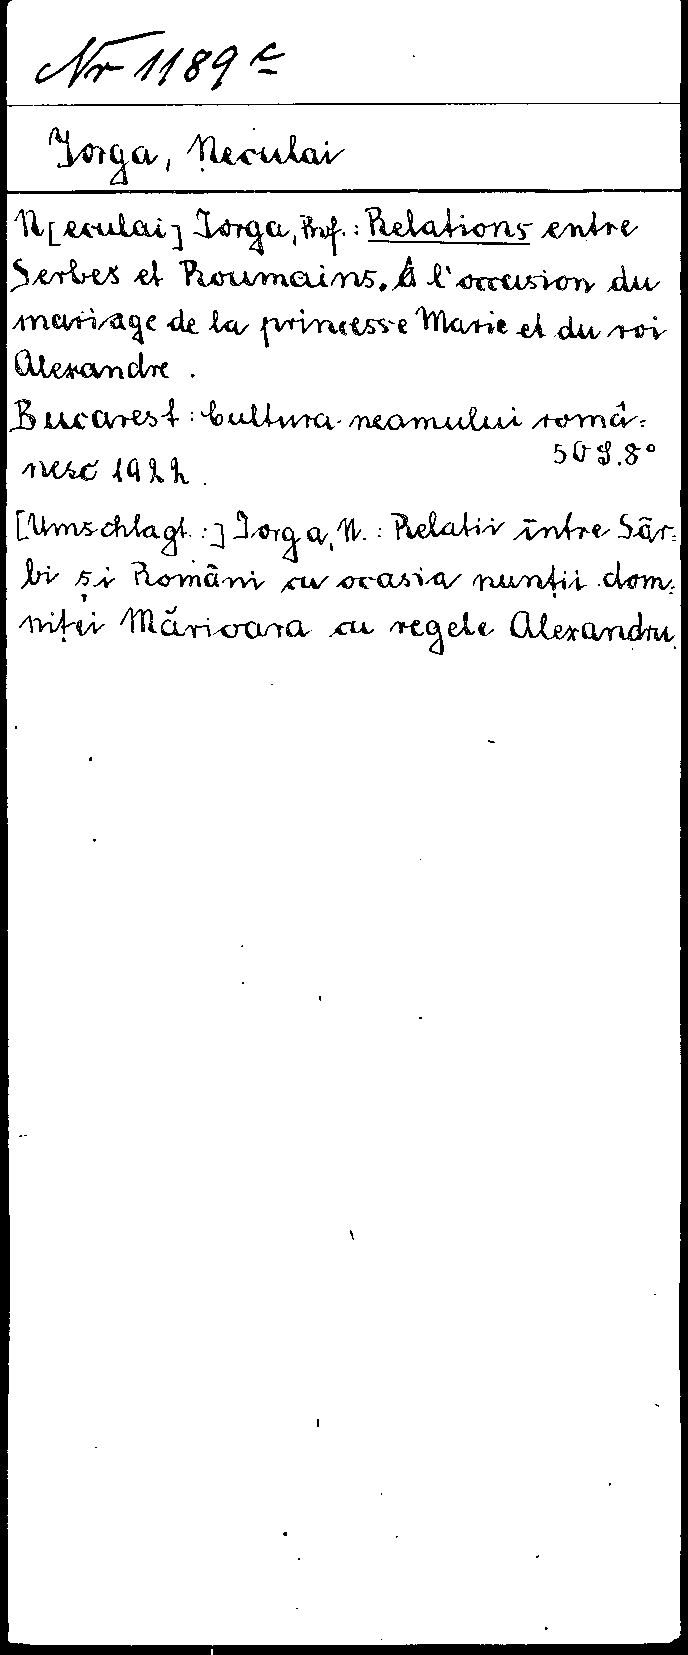 Nr 1189 c
Jorga, Neculai
N[eculai] Jorga, Prof.: Relations entre
Serbes et Roumains. À l'occasion du
mariage de la princesse Marie et du roi
Alexandre.
Bucarest: Cultura neamului româ=
nesc 1922. 50 S. 8°
[Umschlagt.:] Jorga, N.: Relatii între Sâr=
bi și Români cu ocasia nunții dom=
niței Mărioara cu regele Alexandru.